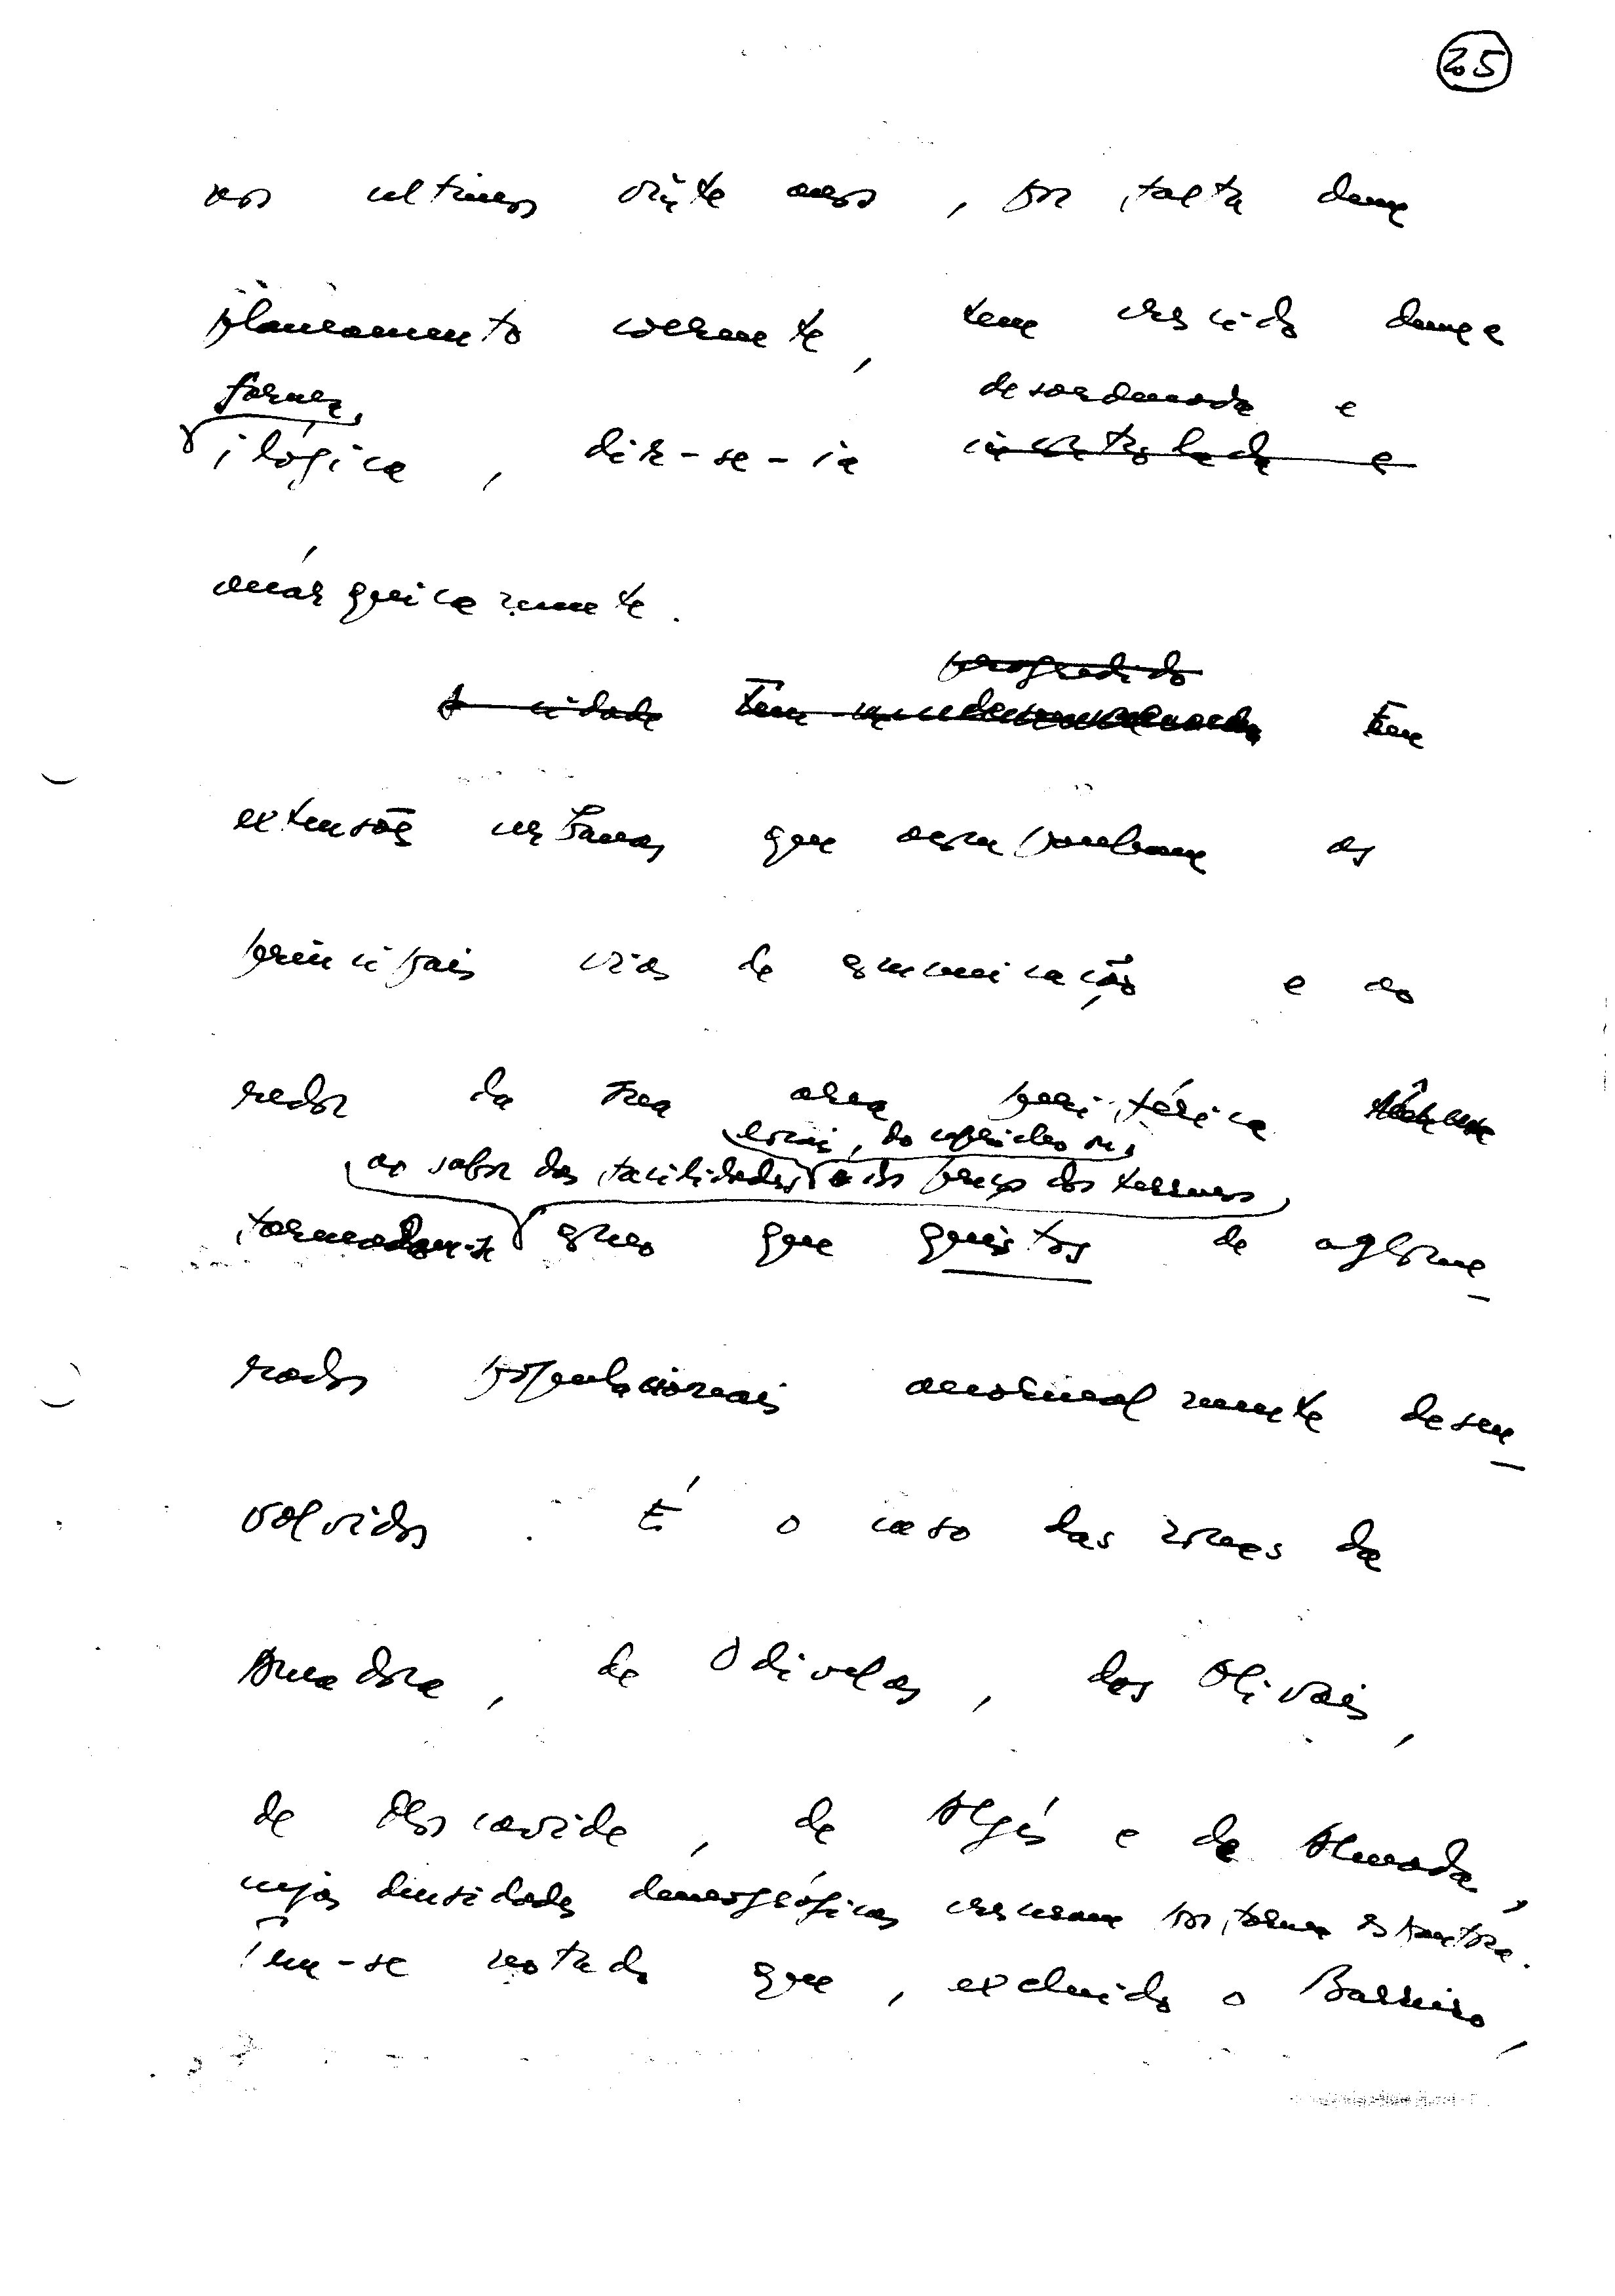 25
nos ultimos vinte anos, por falta dum
planeamento coerente, tem crescido duma
forma
desordenada e
ilógica, dir-se-ia incontrolada e
anárquicamente.
progredido
A cidade tem Em
extensões urbanas que acompanham as
principais vias de comunicação e ao
redor da sua area periférica
locais, do capricho ou
ao sabor das facilidades e do preço dos terrenos
formaram-se como que quistos de aglome_
rados populacionais anormalmente desen_
volvidos. É o caso das zonas da
Amadora, de Odivelas, dos Olivais,
de Moscavide, de Algés e de Almada,
cujas densidades demográficas cresceram por forma espantosa.
Tem-se notado que, excluido o Barreiro,